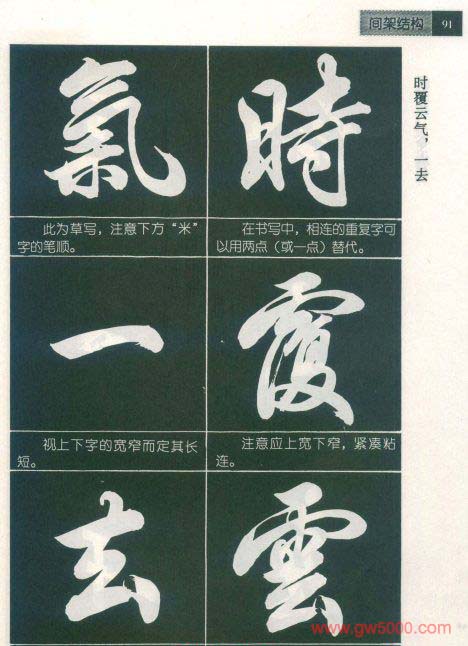 间架结构 91
时覆云气，一去
時
在书写中，相连的重复字可
以用两点（或一点）替代。
覆
注意应上宽下窄，紧凑粘
连。
雲
氣
此为草写，注意下方“米”
字的笔顺。
一
视上下字的宽窄而定其长
短。
去
www.gw5000.com